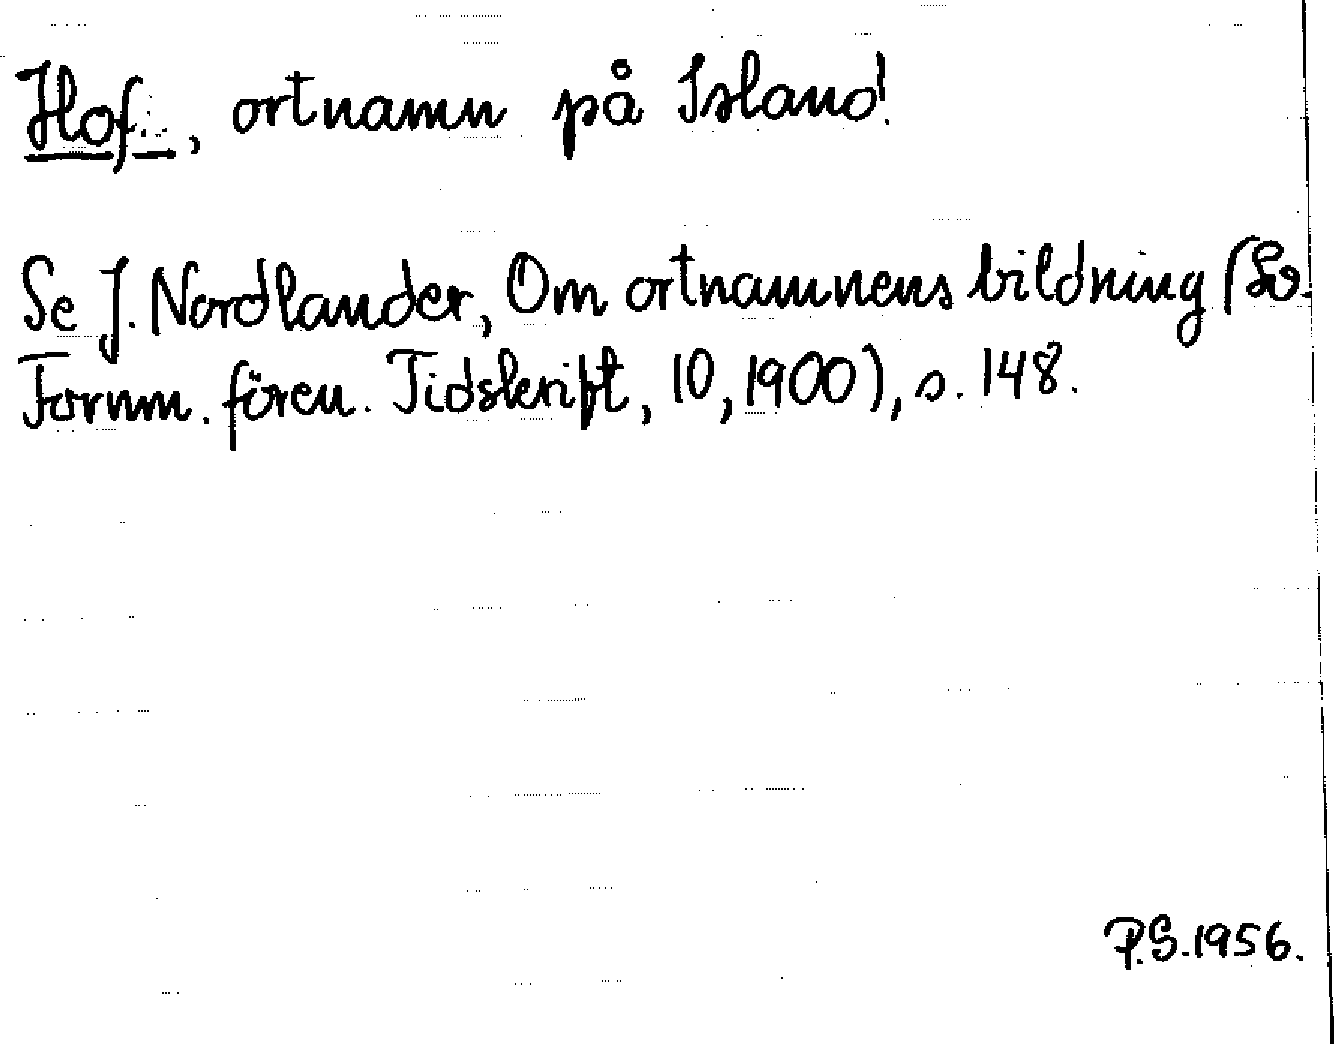 Hof, ortnamn på Island.
Se J. Nordlander, Om ortnamnens bildning (Sv.
Fornm. fören. Tidskrift, 10, 1900), s. 148.
P.S. 1956.